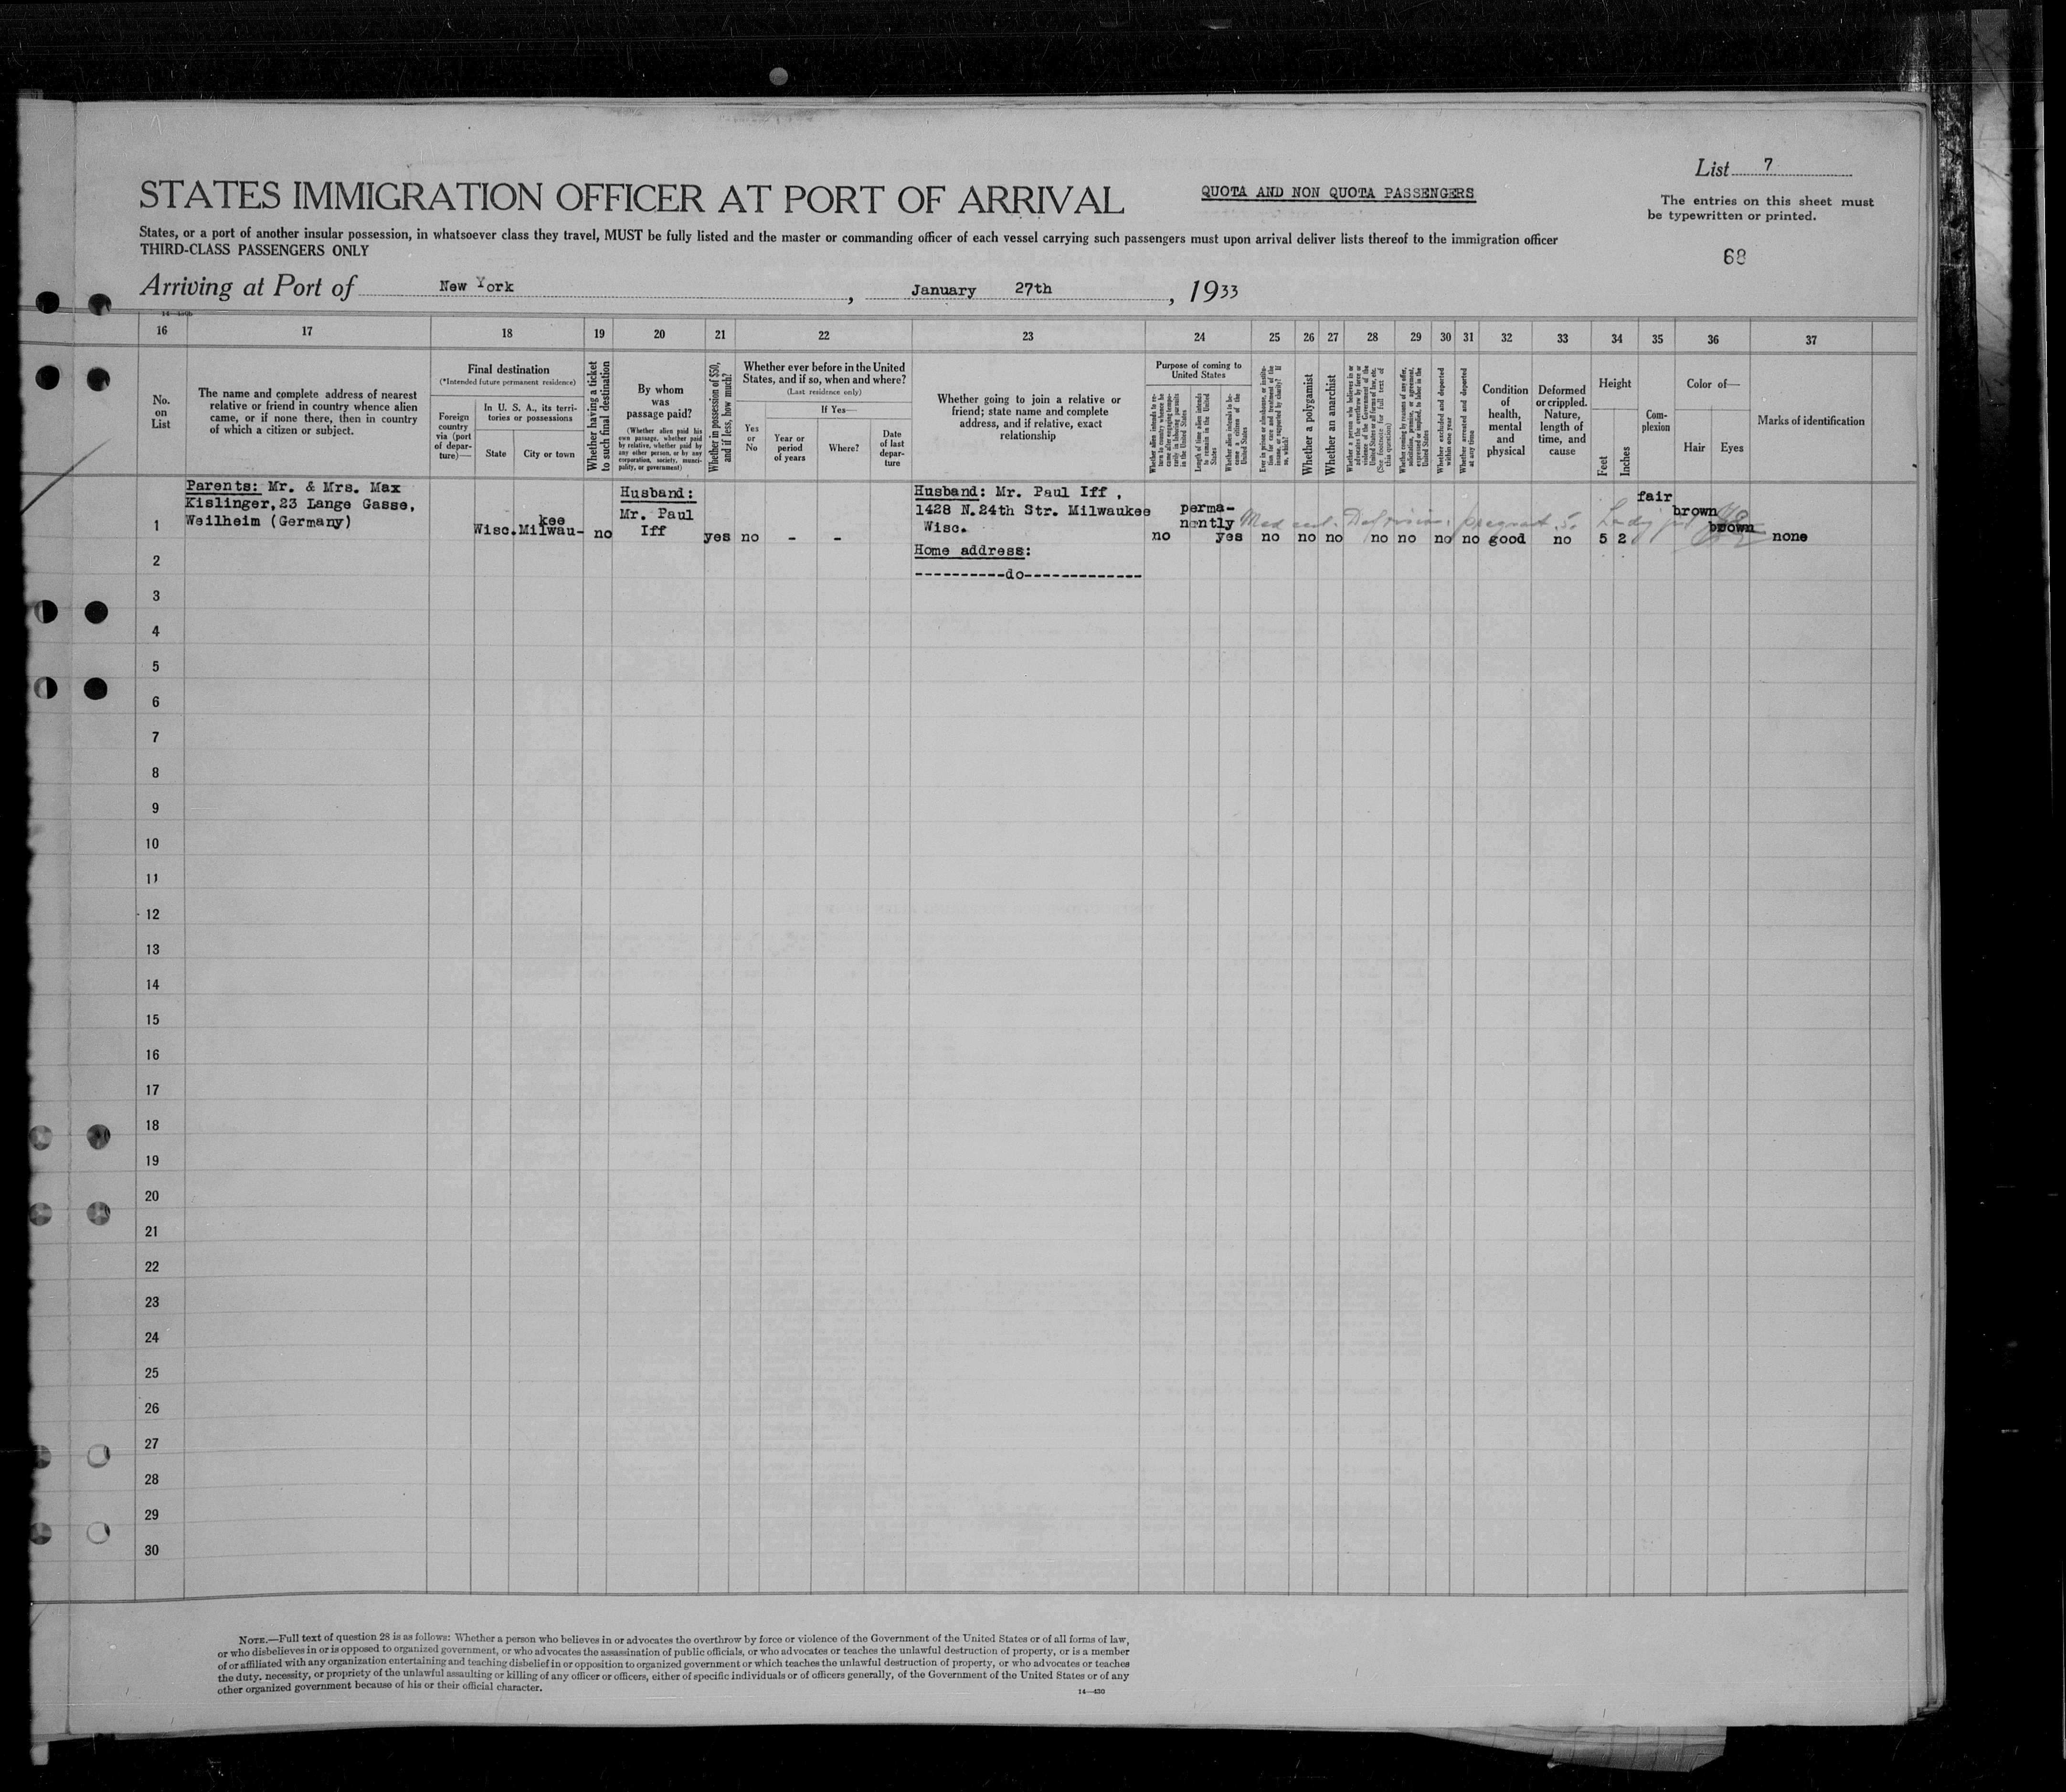 List 7
STATES IMMIGRATION OFFICER AT PORT OF ARRIVAL
QUOTA AND NON QUOTA PASSENGERS
The entries on this sheet must
be typewritten or printed.
States, or a port of another insular possession, in whatsoever class they travel, MUST be fully listed and the master or commanding officer of each vessel carrying such passengers must upon arrival deliver lists thereof to the immigration officer
THIRD-CLASS PASSENGERS ONLY
68
Arriving at Port of New York, January 27th, 1933
16 17 18 19 20 21 22 23 24 25 26 27 28 29 30 31 32 33 34 35 36 37
No.
on
List
The name and complete address of nearest
relative or friend in country whence alien
came, or if none there, then in country
of which a citizen or subject.
Final destination
(*Intended future permanent residence)
Foreign
country
via (port
of depar-
ture)—
In U. S. A., its terri-
tories or possessions
State
City or town
Whether having a ticket
to such final destination
By whom
was
passage paid?
(Whether alien paid his
own passage, whether paid
by relative, whether paid by
any other person, or by any
corporation, society, munici-
pality, or government)
Whether in possession of $50,
and if less, how much?
Whether ever before in the United
States, and if so, when and where?
(Last residence only)
Yes
or
No
If Yes—
Year or
period
of years
Where?
Date
of last
depar-
ture
Whether going to join a relative or
friend; state name and complete
address, and if relative, exact
relationship
Purpose of coming to
United States
Length of time alien intends
to remain in the United
States
Whether alien intends to be-
come a citizen of the
United States
Whether a polygamist
Whether an anarchist
Whether excluded and deported
within one year
Whether arrested and deported
at any time
Condition
of
health,
mental
and
physical
Deformed
or crippled.
Nature,
length of
time, and
cause
Height
Feet
Inches
Com-
plexion
Color of—
Hair
Eyes
Marks of identification
1
Parents: Mr. & Mrs. Max
Kislinger, 23 Lange Gasse,
Weilheim (Germany)
kee
Wisc. Milwau-
no
Husband:
Mr. Paul
Iff
yes
no
-
-
Husband: Mr. Paul Iff ,
1428 N.24th Str. Milwaukee
Wisc.
Home address:
----------do-------------
no
perma-
nently
yes
no
no
no
no
no
no
no
good
no
5
2
fair
brown
brown
none
2
3
4
5
6
7
8
9
10
11
12
13
14
15
16
17
18
19
20
21
22
23
24
25
26
27
28
29
30
NOTE.—Full text of question 28 is as follows: Whether a person who believes in or advocates the overthrow by force or violence of the Government of the United States or of all forms of law,
or who disbelieves in or is opposed to organized government, or who advocates the assassination of public officials, or who advocates or teaches the unlawful destruction of property, or is a member
of or affiliated with any organization entertaining and teaching disbelief in or opposition to organized government or which teaches the unlawful destruction of property, or who advocates or teaches
the duty, necessity, or propriety of the unlawful assaulting or killing of any officer or officers, either of specific individuals or of officers generally, of the Government of the United States or of any
other organized government because of his or their official character.
14—430